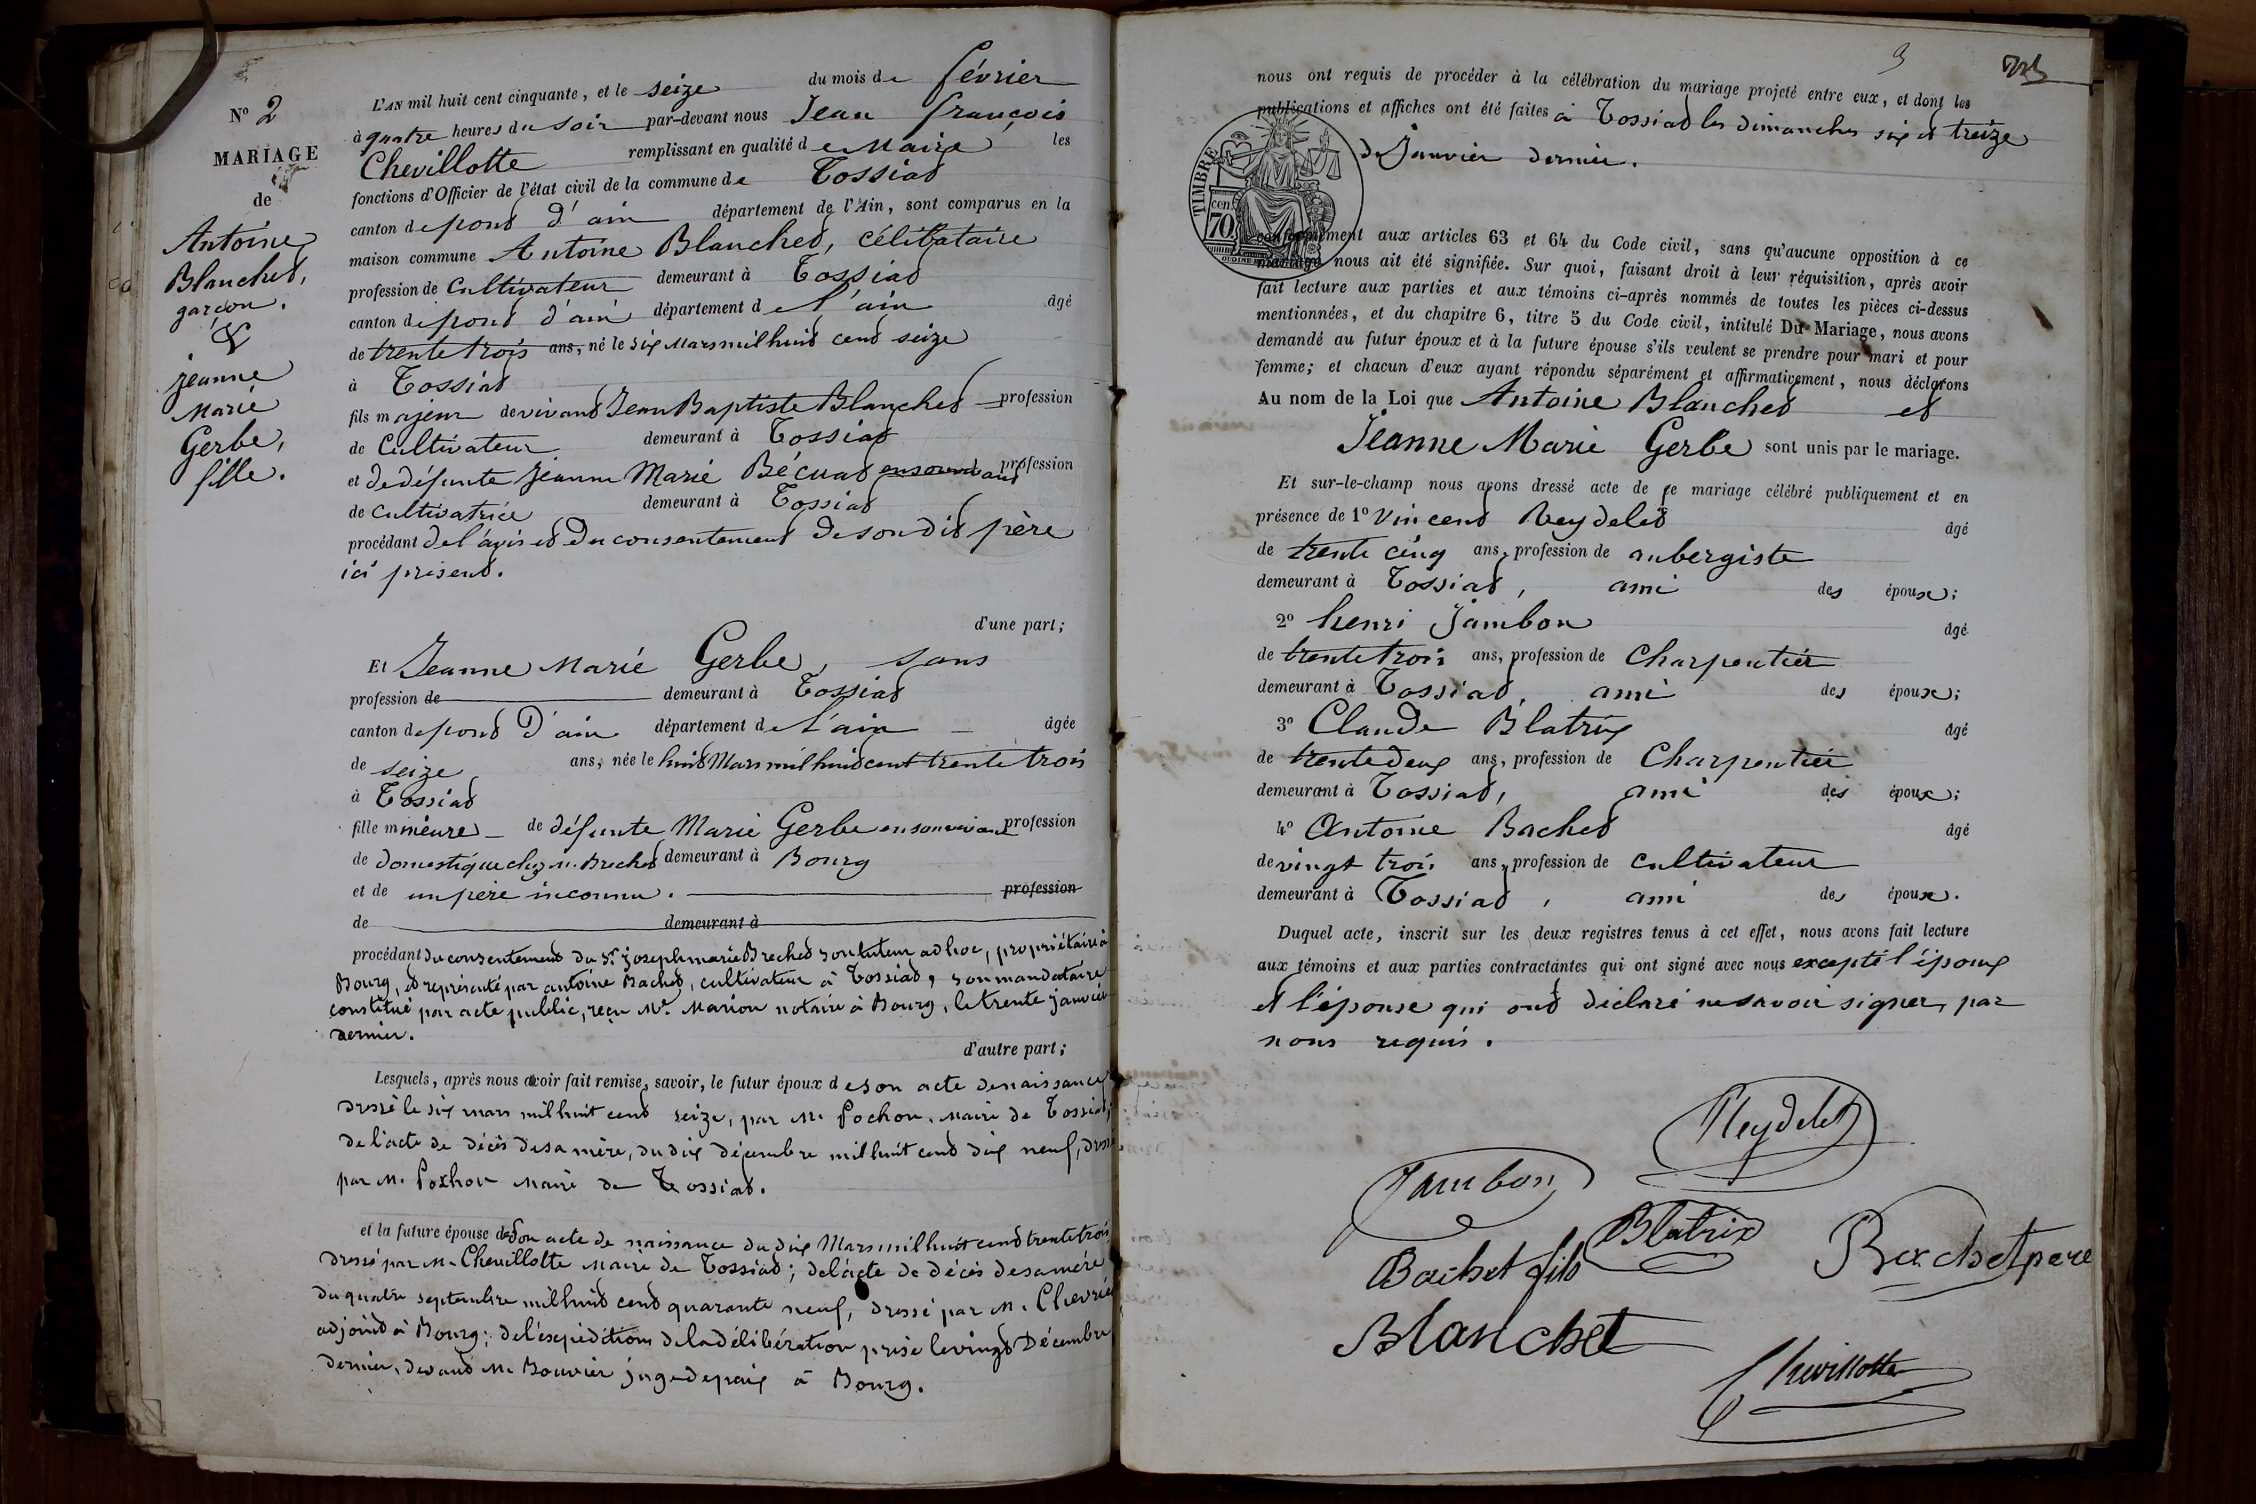 N° 2
MARIAGE
de
Antoine
Blanchet,
garçon.
&
jeanne
Marie
Gerbe,
fille.
L'AN mil huit cent cinquante, et le seize du mois de février
à quatre heures du soir par-devant nous Jean françois
Chevillotte remplissant en qualité de Maire les
fonctions d'Officier de l'état civil de la commune de Tossiat
canton de pont d'ain département de l'Ain, sont comparus en la
maison commune Antoine Blanchet, célibataire
profession de Cultivateur demeurant à Tossiat
canton de pont d'ain département de l'ain âgé
de trente trois ans, né le six Mars mil huit cent seize
à Tossiat
fils majeur de vivant Jean Baptiste Blanchet profession
de Cultivateur demeurant à Tossiat
et de défunte jeanne Marie Bécuat en son vivant profession
de Cultivatrice demeurant à Tossiat
procédant de l'avis et du consentement de son dit père
ici présent.
d'une part;
Et Jeanne Marie Gerbe, sans
profession de demeurant à Tossiat
canton de pont d'ain département de l'ain âgée
de seize ans, née le huit Mars mil huit cent trente trois
à Tossiat
fille mineure de défunte Marie Gerbe en son vivant profession
de domestique chez M. Brechet demeurant à Bourg
et de un père inconnu. profession
de demeurant à
procédant du consentement du Sr. joseph marie Brechet son tuteur ad hoc, propriétaire à
Bourg, et représenté par antoine Bachet, cultivateur à Tossiat, son mandataire
constitué par acte public, reçu Me. Marion notaire à Bourg, le trente janvier
dernier.
d'autre part;
Lesquels, après nous avoir fait remise, savoir, le futur époux de son acte de naissance
dressé le six mars mil huit cent seize, par M. Pochon, Maire de Tossiat;
de l'acte de décès de sa mère, du dix décembre mil huit cent dix neuf, dressé
par M. Pochon Maire de Tossiat.
et la future épouse de son acte de naissance du dix Mars mil huit cent trente trois
dressé par M. Chevillotte Maire de Tossiat; de l'acte de décès de sa mère
du quatre septembre mil huit cent quarante neuf, dressé par M. Chevrié
adjoint à Bourg; de l'expédition de la délibération prise le vingt Décembre
dernier, devant M. Bouvier juge de paix à Bourg.
9
nous ont requis de procéder à la célébration du mariage projeté entre eux, et dont les
publications et affiches ont été faites à Tossiat les dimanches six et treize
de Janvier dernier.
TIMBRE
70 cen
conformément aux articles 63 et 64 du Code civil, sans qu'aucune opposition à ce
mariage nous ait été signifiée. Sur quoi, faisant droit à leur réquisition, après avoir
fait lecture aux parties et aux témoins ci-après nommés de toutes les pièces ci-dessus
mentionnées, et du chapitre 6, titre 5 du Code civil, intitulé Du Mariage, nous avons
demandé au futur époux et à la future épouse s'ils veulent se prendre pour mari et pour
femme; et chacun d'eux ayant répondu séparément et affirmativement, nous déclarons
Au nom de la Loi que Antoine Blanchet et
Jeanne Marie Gerbe sont unis par le mariage.
Et sur-le-champ nous avons dressé acte de ce mariage célébré publiquement et en
présence de 1° Vincent Reydelet âgé
de trente cinq ans, profession de aubergiste
demeurant à Tossiat, ami des époux;
2° henri Jambon âgé
de trente trois ans, profession de Charpentier
demeurant à Tossiat, ami des époux;
3° Claude Blatrix âgé
de trente deux ans, profession de Charpentier
demeurant à Tossiat, ami des époux;
4° Antoine Bachet âgé
de vingt trois ans, profession de cultivateur
demeurant à Tossiat, ami des époux.
Duquel acte, inscrit sur les deux registres tenus à cet effet, nous avons fait lecture
aux témoins et aux parties contractantes qui ont signé avec nous excepté l'époux
et l'épouse qui ont déclaré ne savoir signer, par
nous requis.
Reydelet
Jambon
Blatrix
Bachet fils
Bachet pere
Blanchet
Chevillotte